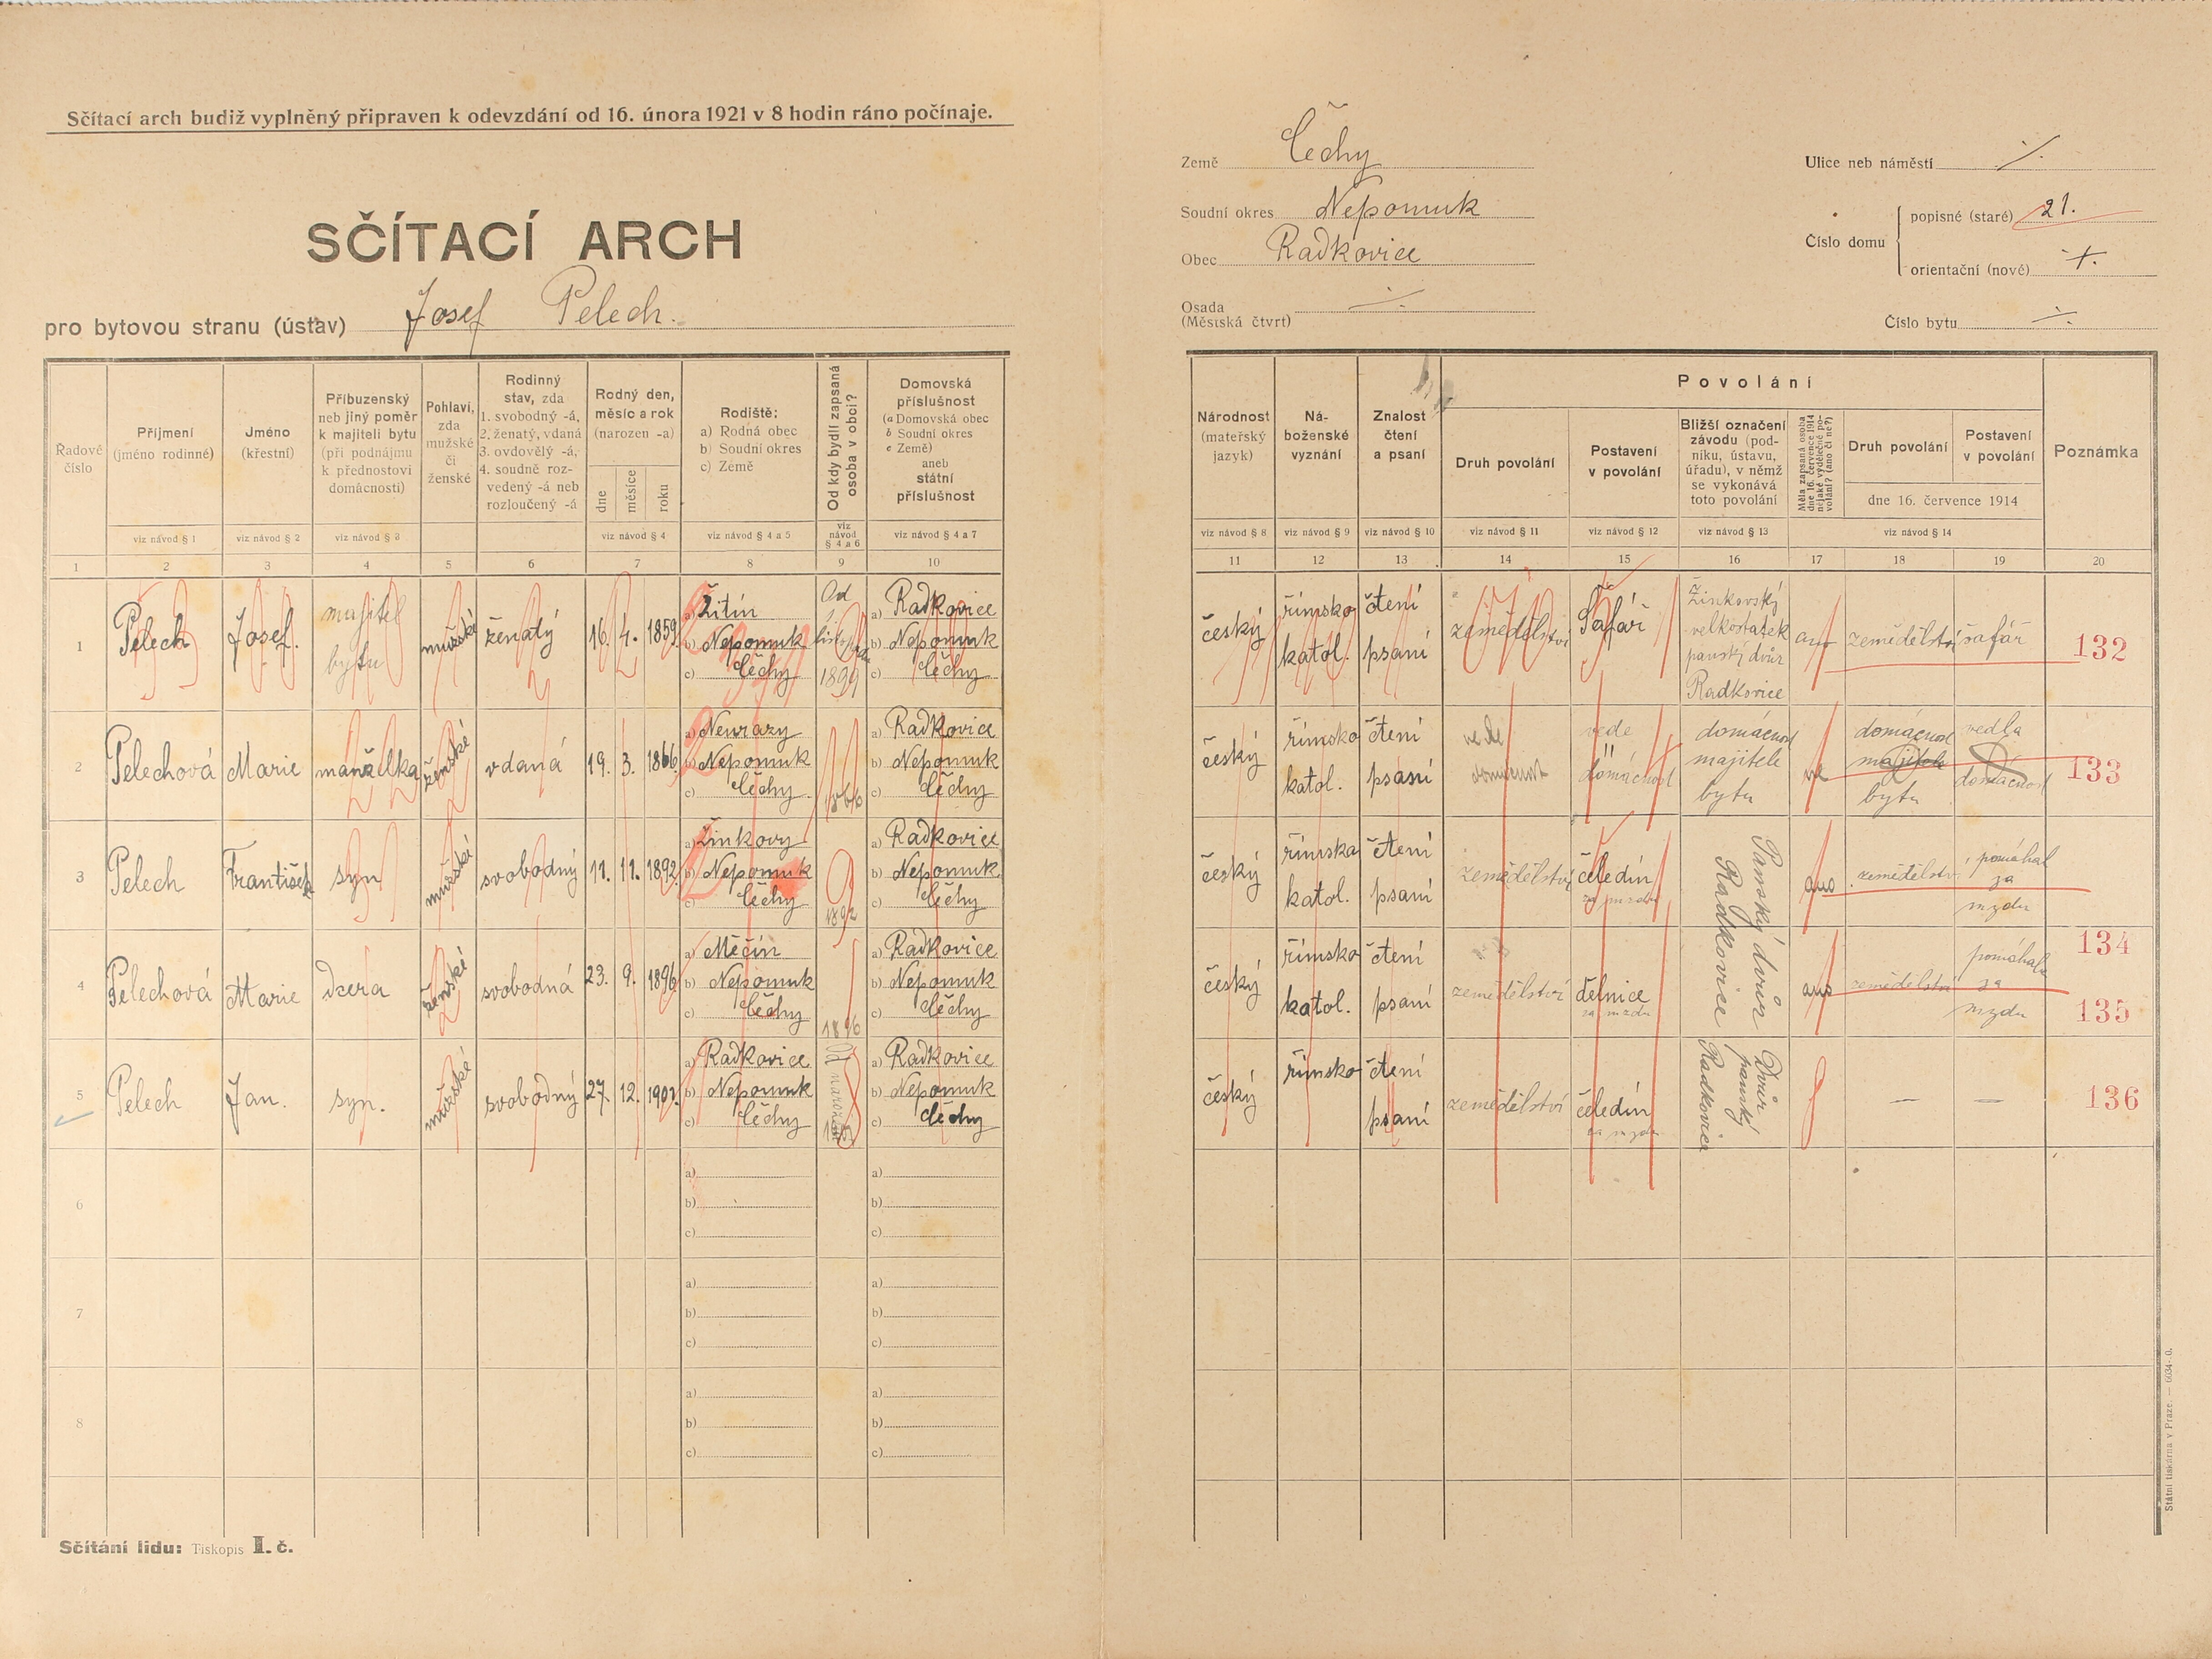 Sčítací arch budiž vyplněný připraven k odevzdání od 16. února 1921 v 8 hodin ráno počínaje.
SČÍTACÍ ARCH
pro bytovou stranu (ústav) Josef Pelech.
Země Čechy
Soudní okres Nepomuk
Obec Radkovice
Osada
(Městská čtvrt)
Ulice neb náměstí
Číslo domu
popisné (staré) 21.
orientační (nové)
Číslo bytu
Řadové číslo
Příjmení (jméno rodinné)
Jméno (křestní)
Příbuzenský neb jiný poměr k majiteli bytu (při podnájmu k přednostovi domácnosti)
Pohlaví, zda mužské či ženské
Rodinný stav, zda 1. svobodný -á, 2. ženatý, vdaná 3. ovdovělý -á, 4. soudně rozvedený -á neb rozloučený -á
Rodný den, měsíc a rok (narozen -a)
dne měsíce roku
Rodiště: a) Rodná obec b) Soudní okres c) Země
Od kdy bydlí zapsaná osoba v obci?
Domovská příslušnost (a Domovská obec b Soudní okres c Země) aneb státní příslušnost
viz návod § 1
viz návod § 2
viz návod § 3
viz návod § 4
viz návod § 4 a 5
viz návod § 4 a 6
viz návod § 4 a 7
1 2 3 4 5 6 7 8 9 10
Národnost (mateřský jazyk)
Náboženské vyznání
Znalost čtení a psaní
Povolání
Druh povolání
Postavení v povolání
Bližší označení závodu (podniku, ústavu, úřadu), v němž se vykonává toto povolání
Měla zapsaná osoba dne 16. července 1914 nějaké výdělečné povolání? (ano či ne?)
Druh povolání
Postavení v povolání
dne 16. července 1914
Poznámka
viz návod § 8
viz návod § 9
viz návod § 10
viz návod § 11
viz návod § 12
viz návod § 13
viz návod § 14
11 12 13 14 15 16 17 18 19 20
1 Pelech Josef. majitel bytu mužské ženatý 16. 4. 1859
a) Žitín b) Nepomuk c) Čechy
Od 1899
a) Radkovice b) Nepomuk c) Čechy
český římsko katol. čtení psaní zemědělství Šafář
Žinkovský velkostatek panský dvůr Radkovice
ano zemědělství šafář 132
2 Pelechová Marie manželka ženské vdaná 19. 3. 1866
a) Neurazy b) Nepomuk c) Čechy
1866
a) Radkovice b) Nepomuk c) Čechy
český římsko katol. čtení psaní vede domácnost vede domácnost
domácnost majitele bytu
ne domácnost majitele bytu vedla domácnost 133
3 Pelech František syn mužské svobodný 11. 11. 1892
a) Žinkovy b) Nepomuk c) Čechy
1892
a) Radkovice b) Nepomuk c) Čechy
český římsko katol. čtení psaní zemědělství čeledín za mzdu
Panský dvůr Radkovice
ano zemědělství pomáhal za mzdu 134
4 Pelechová Marie dcera ženské svobodná 23. 9. 1896
a) Měčín b) Nepomuk c) Čechy
1896
a) Radkovice b) Nepomuk c) Čechy
český římsko katol. čtení psaní zemědělství dělnice za mzdu
ano zemědělství pomáhala za mzdu 135
5 Pelech Jan. syn. mužské svobodný 27. 12. 1901.
a) Radkovice b) Nepomuk c) Čechy
a) Radkovice b) Nepomuk c) Čechy
český římsko čtení psaní zemědělství čeledín za mzdu
Dvůr panský Radkovice
— — 136
6
a) b) c)
a) b) c)
7
a) b) c)
a) b) c)
8
a) b) c)
a) b) c)
Sčítání lidu: Tiskopis I. č.
Státní tiskárna v Praze. — 6034-0.